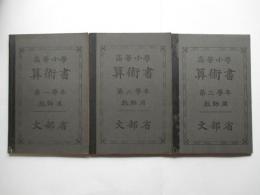 高等小學
算術書
第一學年
教師用
文部省
高等小學
算術書
第二學年
教師用
文部省
高等小學
算術書
第二學年
教師用
文部省